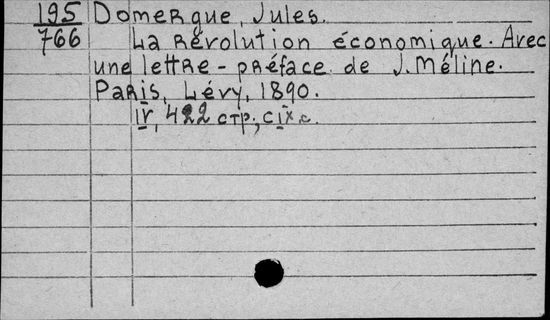 195 Domergue, Jules.
766 La Révolution économique. Avec
une lettre-préface de J. Méline.
Paris, Lévy, 1890.
IV, 422 стр.,